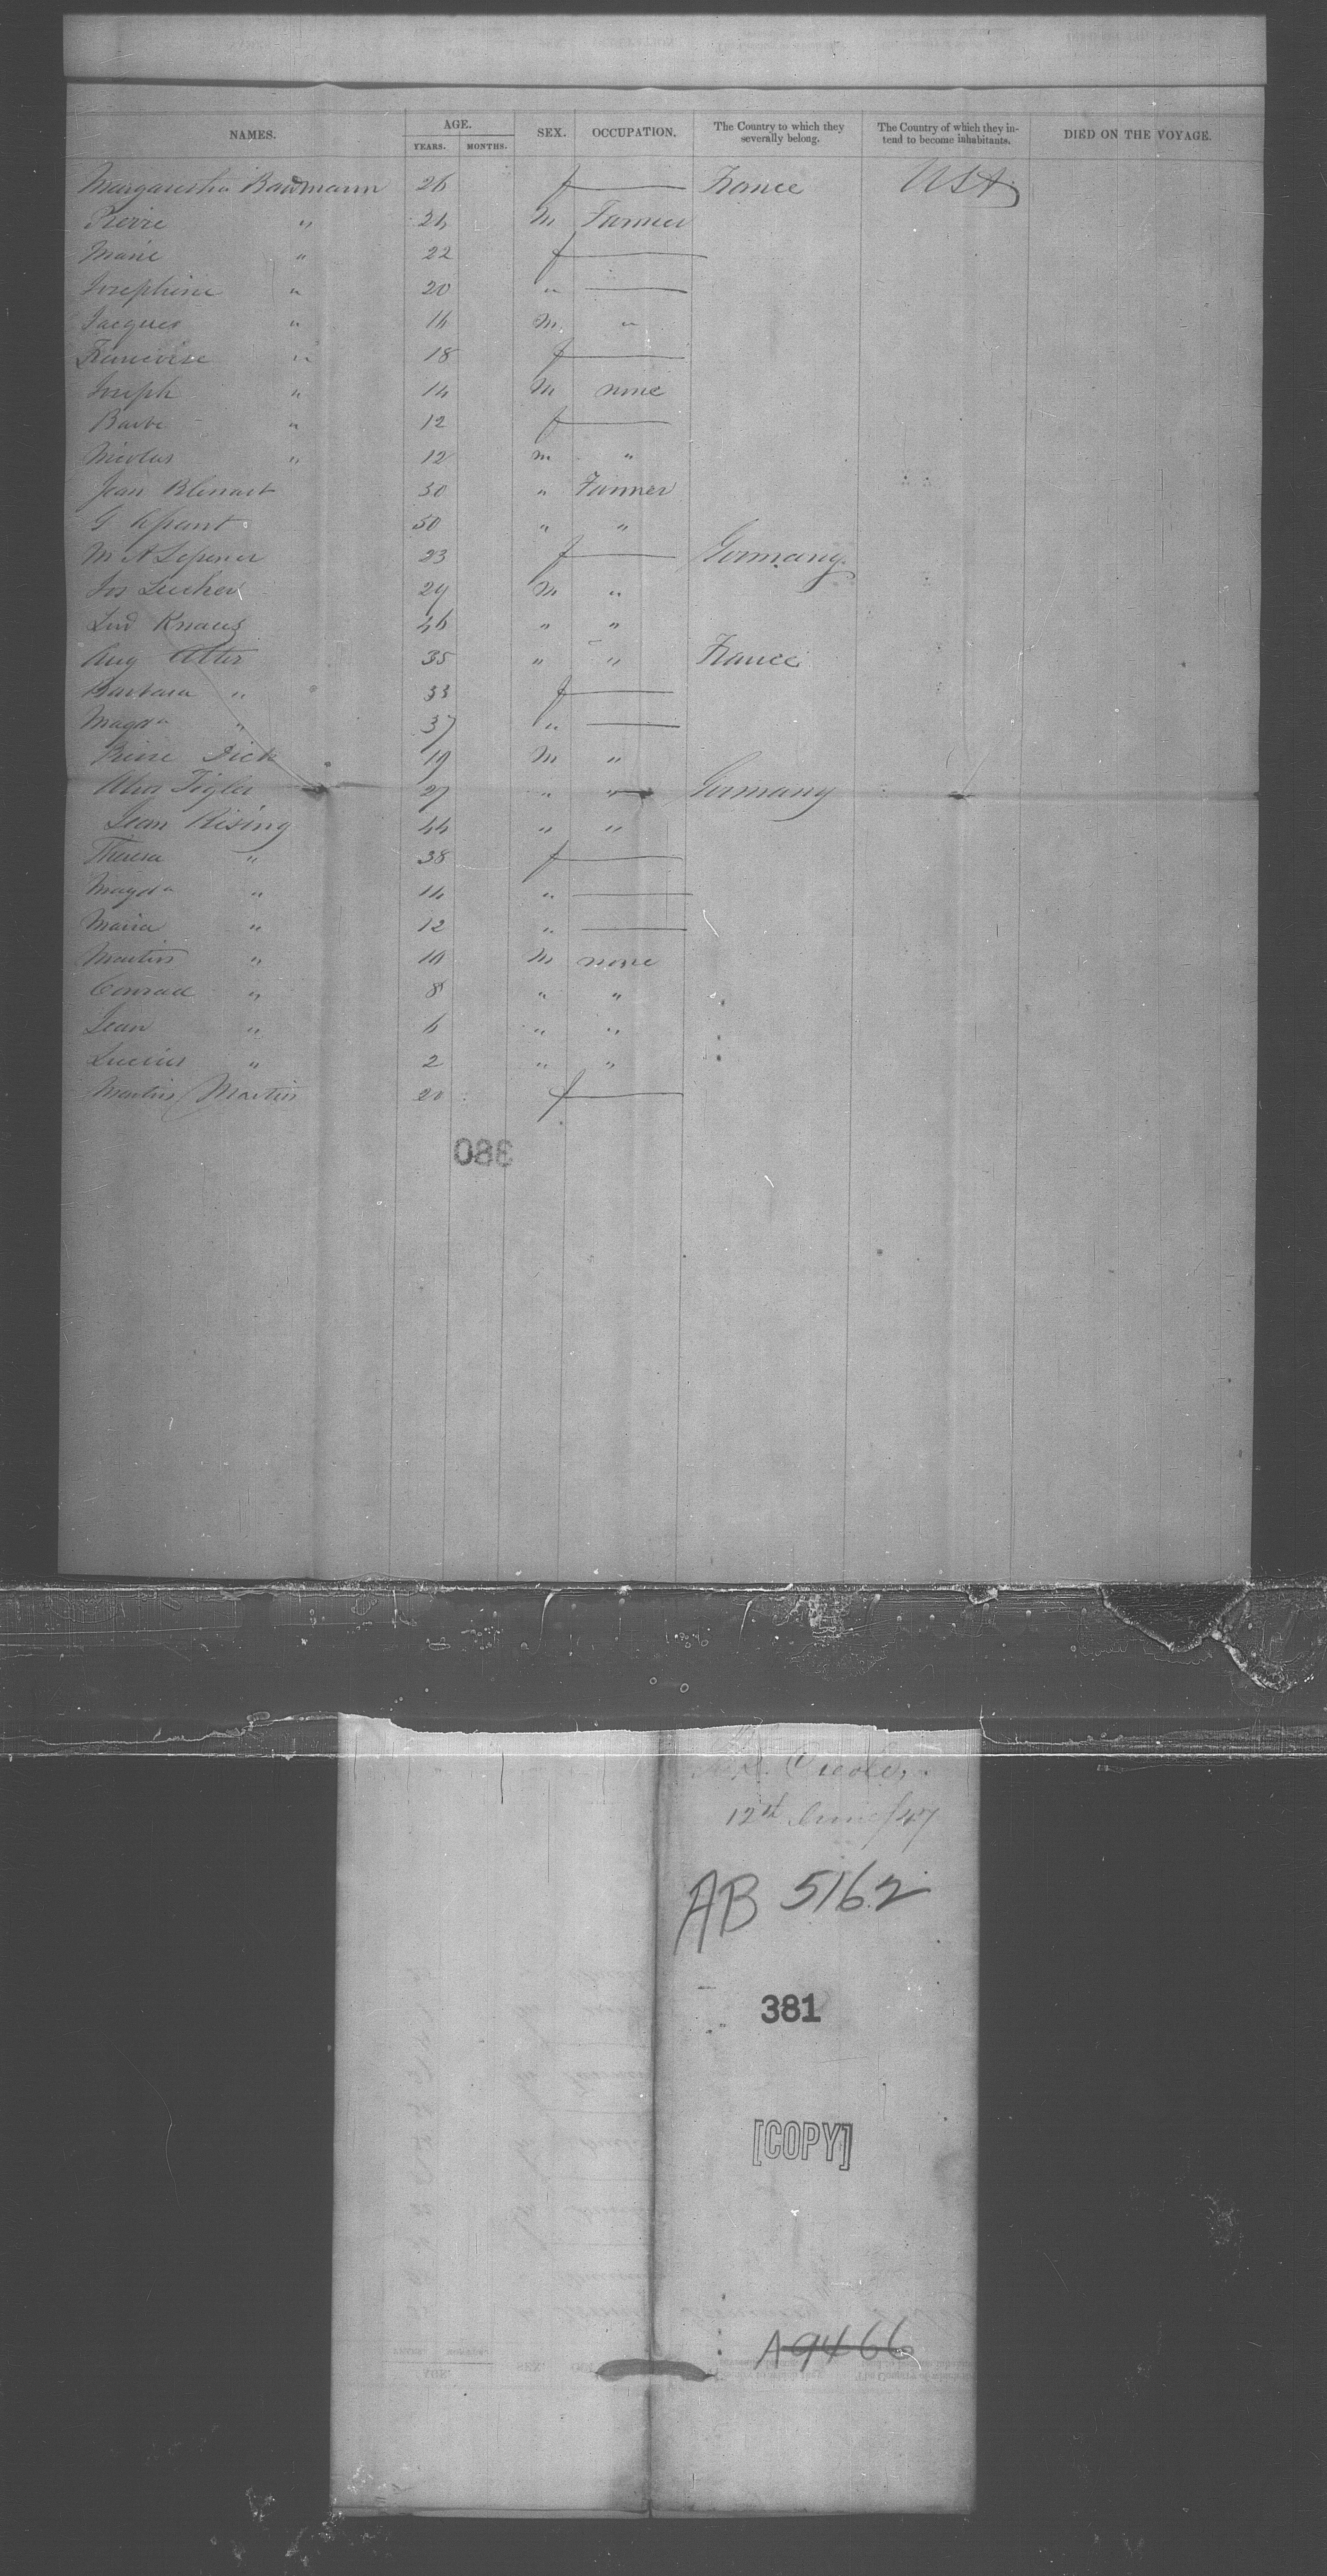 NAMES. AGE. YEARS. MONTHS. SEX. OCCUPATION. The Country to which they severally belong. The Country of which they intend to become inhabitants. DIED ON THE VOYAGE.
Margaretha Baumann 26 f — France USA
Pierre " 26 M Farmer
Marie " 22 f —
Josephine " 20 " —
Jacques " 16 M "
Francoise " 18 f —
Joseph " 14 M none
Barbe " 12 f —
Nicolas " 12 m "
Jean 30 " Farmer
G 50 " "
M A 23 f — Germany
Jos 29 M "
Knaus 46 " "
Aug Alter 35 " " France
Barbara " 33 f —
Magda " 37 " —
Pierre Dick 19 M "
Figler 27 " " Germany
Jean Rising 44 " "
Theresa " 38 f —
Magda " 14 " —
Maria " 12 " —
Martin " 10 M none
Conrad " 8 " "
Jean " 6 " "
" 2 " "
Martin Martin 20 f —
380
Creole
12th June/47
AB 5162
381
[COPY]
A9466